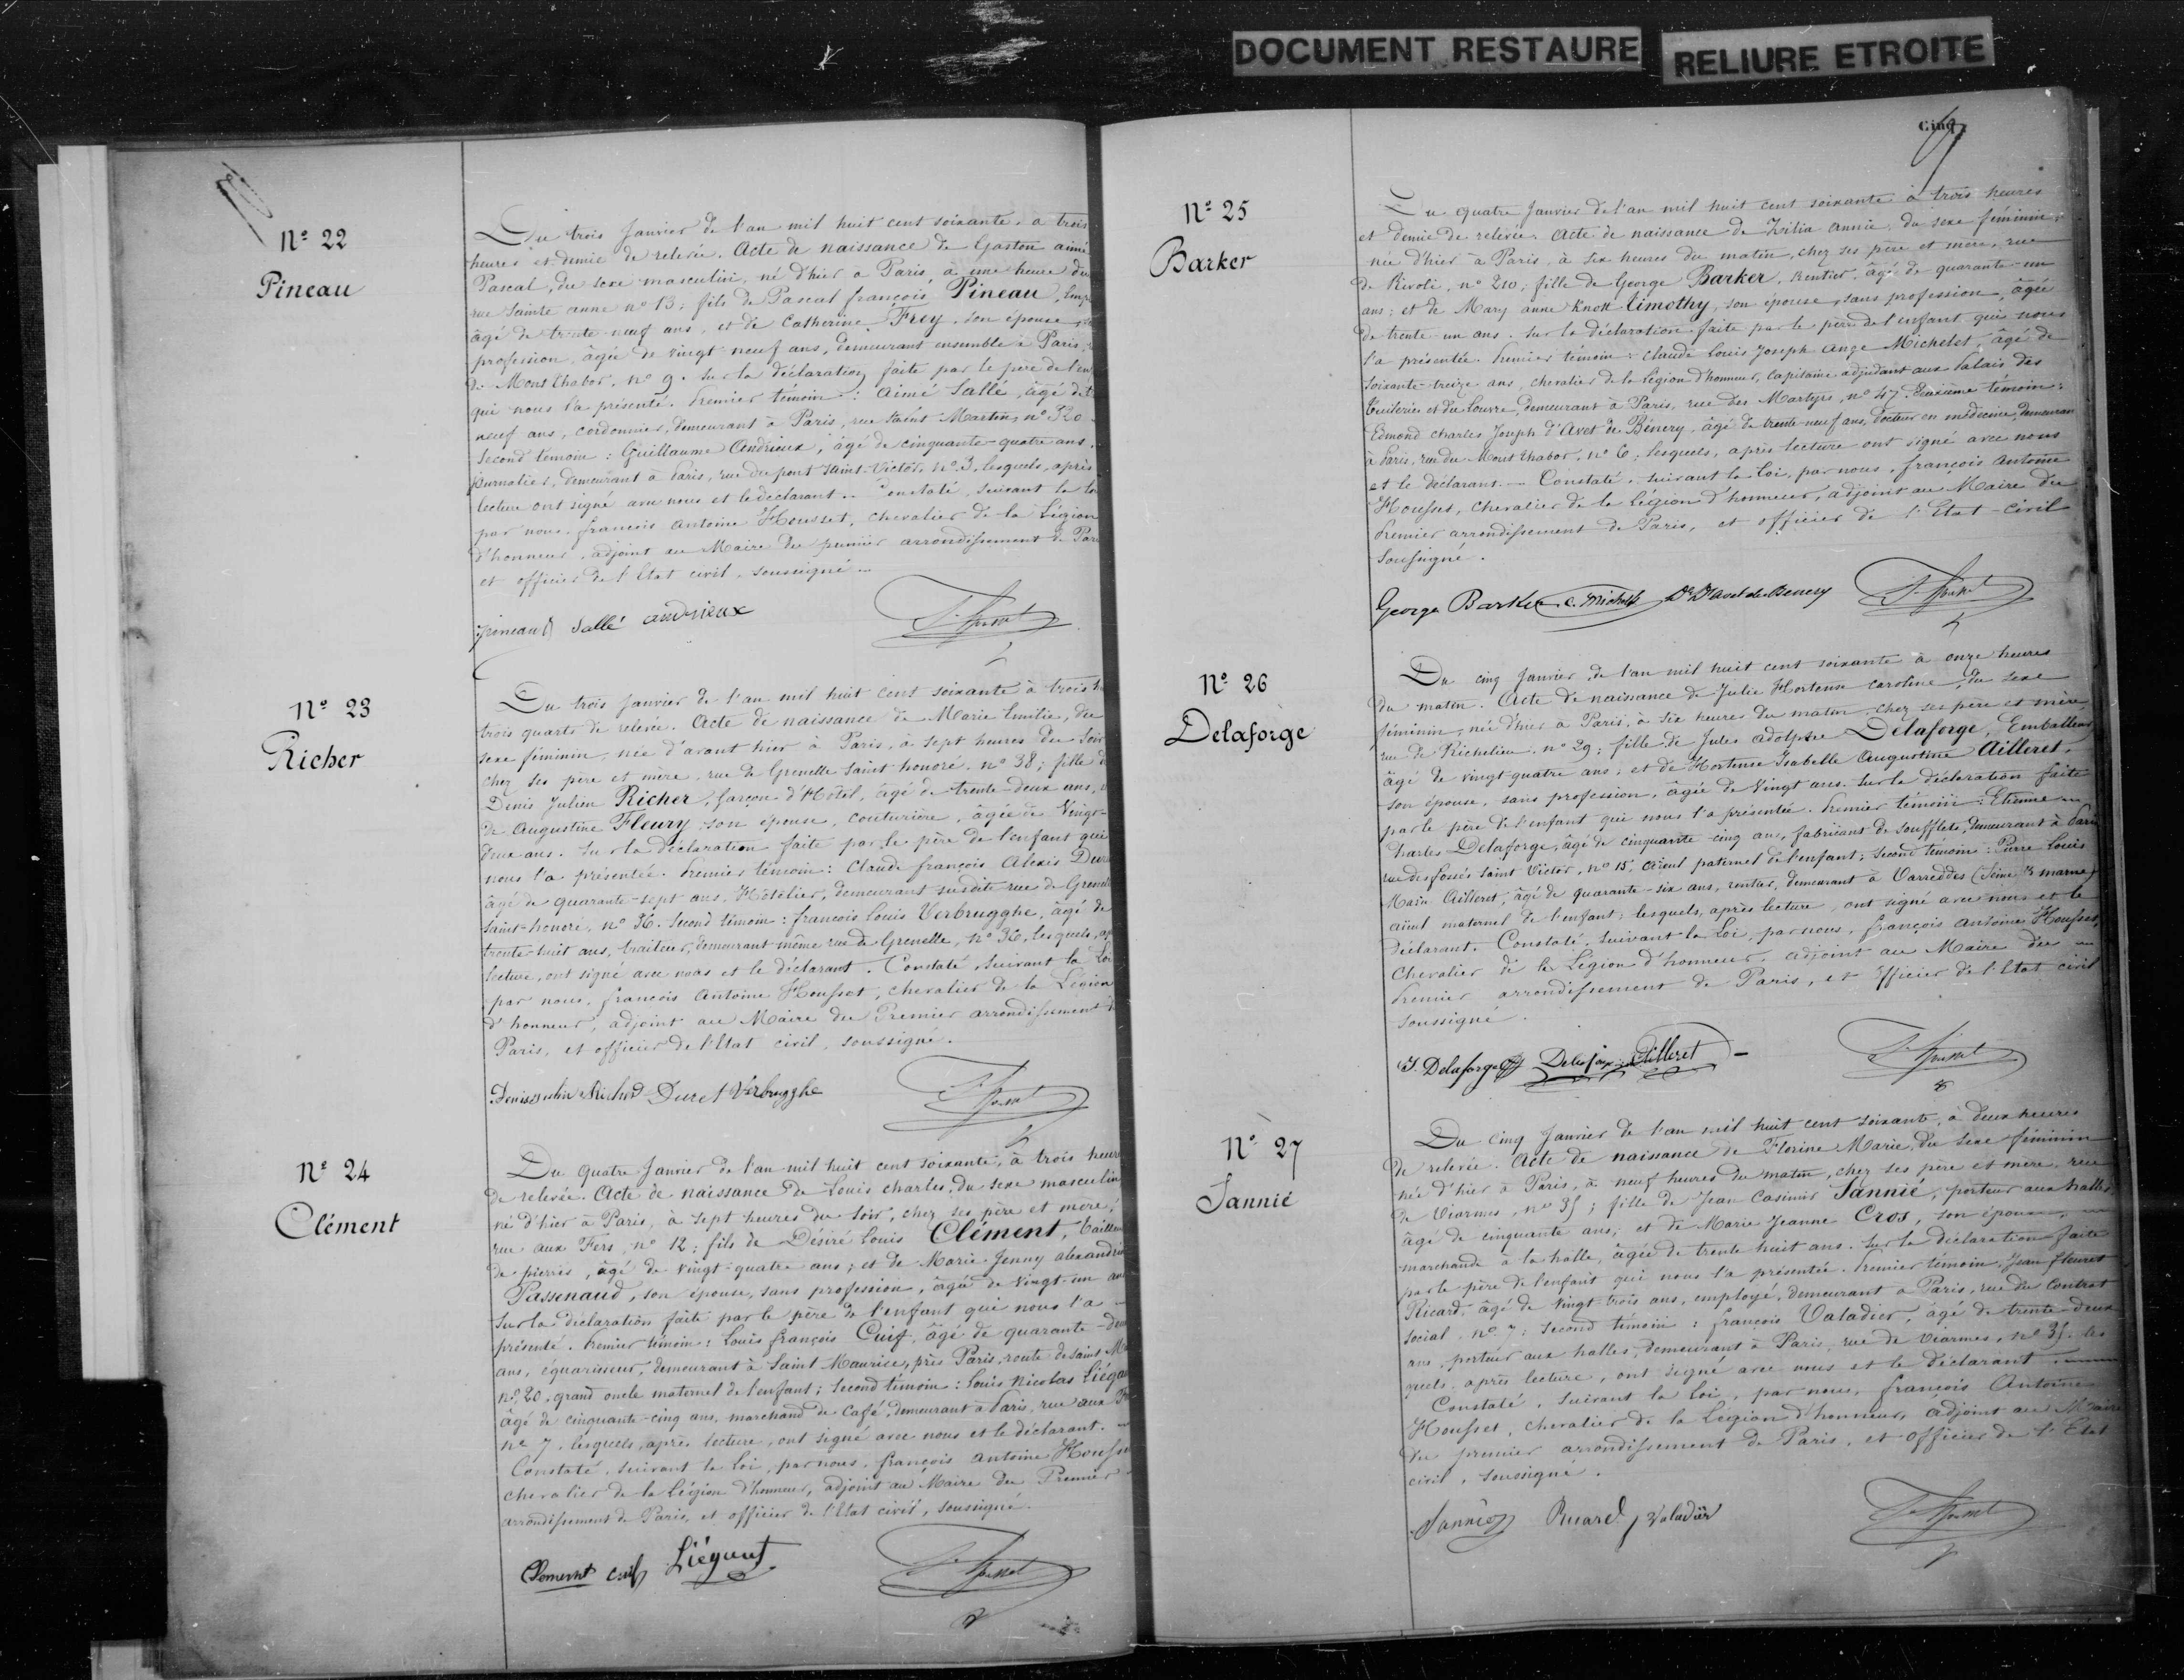 DOCUMENT RESTAURE
RELIURE ETROITE
Nº 22
Pineau
Du trois Janvier de l'an mil huit cent soixante, à trois
heures et demie de relevée. Acte de naissance de Gaston aimé
Pascal, du sexe masculin, né d'hier à Paris, à une heure du
rue Sainte anne nº 13; fils de Pascal françois Pineau,
âgé de trente-neuf ans, et de Catherine Frey, son épouse,
profession, âgée de vingt-neuf ans, demeurant ensemble à Paris,
du Mont Thabor, nº 9. Sur la déclaration faite par le père de l'en
qui nous l'a présenté. Premier témoin: Aimé Sallé, âgé de
neuf ans, cordonnier, demeurant à Paris, rue Saint Martin, nº 320
Second témoin: Guillaume Andrieux, âgé de cinquante-quatre ans,
journalier, demeurant à Paris, rue du pont Saint-Victor, nº 3, lesquels, après
lecture ont signé avec nous et le déclarant. Constaté, suivant la loi
par nous, françois antoine Housset, chevalier de la Légion
d'honneur, adjoint au Maire du premier arrondissement de Par
et officier de l'Etat civil, soussigné
Pineau Sallé andrieux
Nº 23
Richer
Du trois Janvier de l'an mil huit cent soixante à trois h
trois quarts de relevée. Acte de naissance de Marie Emilie, du
sexe féminin, née d'avant hier à Paris, à sept heures du soir
chez ses père et mère, rue de Grenelle Saint honoré, nº 38; fille d
Denis Julien Richer, Garçon d'Hôtel, âgé de trente-deux ans,
de Augustine Fleury, son épouse, couturière, âgée de Vingt-
deux ans. Sur la déclaration faite par le père de l'enfant qui
nous l'a présentée. Premier témoin: Claude françois Alexis Dur
âgé de quarante-sept ans, Hôtelier, demeurant susdite rue de Grenelle
Saint-honoré, nº 36. Second témoin: françois Louis Verbrugghe, âgé de
trente-huit ans, traiteur, demeurant même rue de Grenelle, nº 36, lesquels, ap
lecture, ont signé avec nous et le déclarant. Constaté, suivant la Loi
par nous, françois Antoine Housset, chevalier de la Légion
d'honneur, adjoint au Maire du Premier arrondissement d
Paris, et officier de l'Etat civil, soussigné.
Denis Julien Richer Duret Verbrugghe
Nº 24
Clément
Du quatre Janvier de l'an mil huit cent soixante, à trois heure
de relevée. Acte de naissance de Louis charles, du sexe masculin
né d'hier à Paris, à sept heures du soir, chez ses père et mère,
rue aux Fers, nº 12; fils de Désiré Louis Clément, Tailleu
de pierres, âgé de vingt-quatre ans; et de Marie Jenny alexandrin
Passenaud, son épouse, sans profession, âgée de vingt-un an
Sur la déclaration faite par le père de l'enfant qui nous l'a
présenté. Premier témoin: Louis françois Cuif, âgé de quarante-deu
ans, équarisseur, demeurant à Saint Maurice, près Paris, route de Saint M
nº 20, grand oncle maternel de l'enfant; second témoin: Louis Nicolas Liégau
âgé de cinquante-cinq ans, marchand de Café, demeurant à Paris, rue aux F
nº 7, lesquels, après lecture, ont signé avec nous et le déclarant.
Constaté, suivant la Loi, par nous, françois antoine Housse
chevalier de la Légion d'honneur, adjoint au Maire du Premier
arrondissement de Paris, et officier de l'Etat civil, soussigné.
Clement Cuif
Cinq
5
Nº 25
Barker
Du quatre Janvier de l'an mil huit cent soixante à trois heures
et demie de relevée. Acte de naissance de Zilia annie, du sexe féminin,
née d'hier à Paris, à six heures du matin, chez ses père et mère, rue
de Rivoli, nº 210; fille de George Barker, Rentier, âgé de quarante-un
ans; et de Mary anne Knott timothy, son épouse, sans profession, âgée
de trente-un ans. Sur la déclaration faite par le père de l'enfant qui nous
l'a présentée. Premier témoin: Claude Louis Joseph ange Michelet, âgé de
soixante-treize ans, chevalier de la Légion d'honneur, Capitaine adjudant aux Palais des
Tuileries et du Louvre, demeurant à Paris, rue des Martyrs, nº 47. Deuxième témoin:
Edmond charles Joseph d'Avet de Bénery, âgé de trente-neuf ans, docteur en médecine, demeuran
à Paris, rue du Mont Thabor, nº 6; lesquels, après lecture ont signé avec nous
et le déclarant. — Constaté, suivant la Loi, par nous, françois Antoine
Housset, chevalier de la Légion d'honneur, adjoint au Maire du
Premier arrondissement de Paris, et officier de l'Etat-civil
soussigné.
George Barker
Nº 26
Delaforge
Du cinq Janvier de l'an mil huit cent soixante à onze heures
du matin. Acte de naissance de Julie Hortense Caroline, du sexe
féminin, née d'hier à Paris, à six heures du matin chez ses père et mère,
rue de Richelieu, nº 29; fille de Jules adolphe Delaforge, Emballeur,
âgé de vingt-quatre ans; et de Hortense Isabelle Augustine Ailleret,
son épouse, sans profession, âgée de vingt ans. Sur la déclaration faite
par le père de l'enfant qui nous l'a présentée. Premier témoin: Etienne
charles Delaforge, âgé de cinquante-cinq ans, fabricant de soufflets, demeurant à Paris
rue des fossés Saint Victor, nº 15, aïeul paternel de l'enfant; Second témoin: Pierre Louis
Main Ailleret, âgé de quarante-six ans, rentier, demeurant à Varreddes (Seine & marne)
aïeul maternel de l'enfant; lesquels, après lecture, ont signé avec nous et le
déclarant. Constaté, suivant la Loi, par nous, françois Antoine Housset,
Chevalier de la Légion d'honneur, adjoint au Maire du
Premier arrondissement de Paris, et officier de l'Etat civil
soussigné.
J. Delaforge Delaforge Ailleret
Nº 27
Sannié
Du cinq Janvier de l'an mil huit cent soixante, à deux heures
de relevée. Acte de naissance de Florine Marie, du sexe féminin
née d'hier à Paris, à neuf heures du matin, chez ses père et mère, rue
de Viarmes, nº 35; fille de Jean Casimir Sannié, porteur aux halles,
âgé de cinquante ans, et de Marie Jeanne Cros, son épouse,
marchande à la halle, âgée de trente huit ans. Sur la déclaration faite
par le père de l'enfant qui nous l'a présentée. Premier témoin: Jean fleuret
Ricard, âgé de vingt-trois ans, employé, demeurant à Paris, rue du Contrat
Social, nº 7; Second témoin: françois Valadier, âgé de trente-deux
ans, porteur aux halles, demeurant à Paris, rue de Viarmes, nº 35, les
quels, après lecture, ont signé avec nous et le déclarant.
Constaté, suivant la Loi, par nous, françois Antoine
Housset, chevalier de la Légion d'honneur, adjoint au Maire
du premier arrondissement de Paris, et officier de l'Etat
civil, soussigné.
Sannié Ricard Valadier